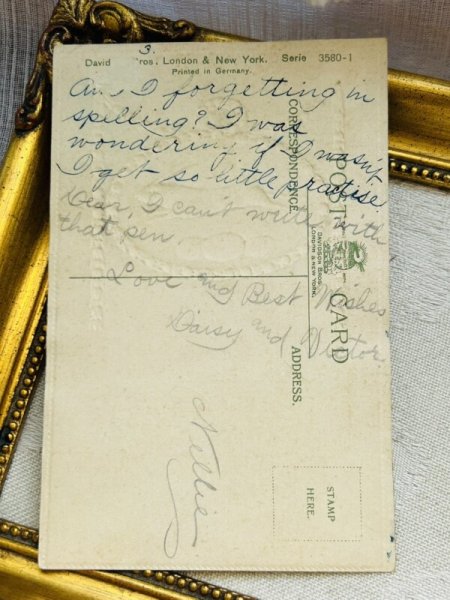 3.
David ros, London & New York. Serie 3580-1
Printed in Germany.
Am I forgetting in
spelling? I was
wondering if I wasn't
I get so little practise
Dear, I can't write with
that pen.
Love and Best Wishes
Daisy and Victor
Nellie
POST CARD
CORRESPONDENCE
DAVIDSON BROS.
LONDON & NEW YORK.
ADDRESS.
STAMP
HERE.